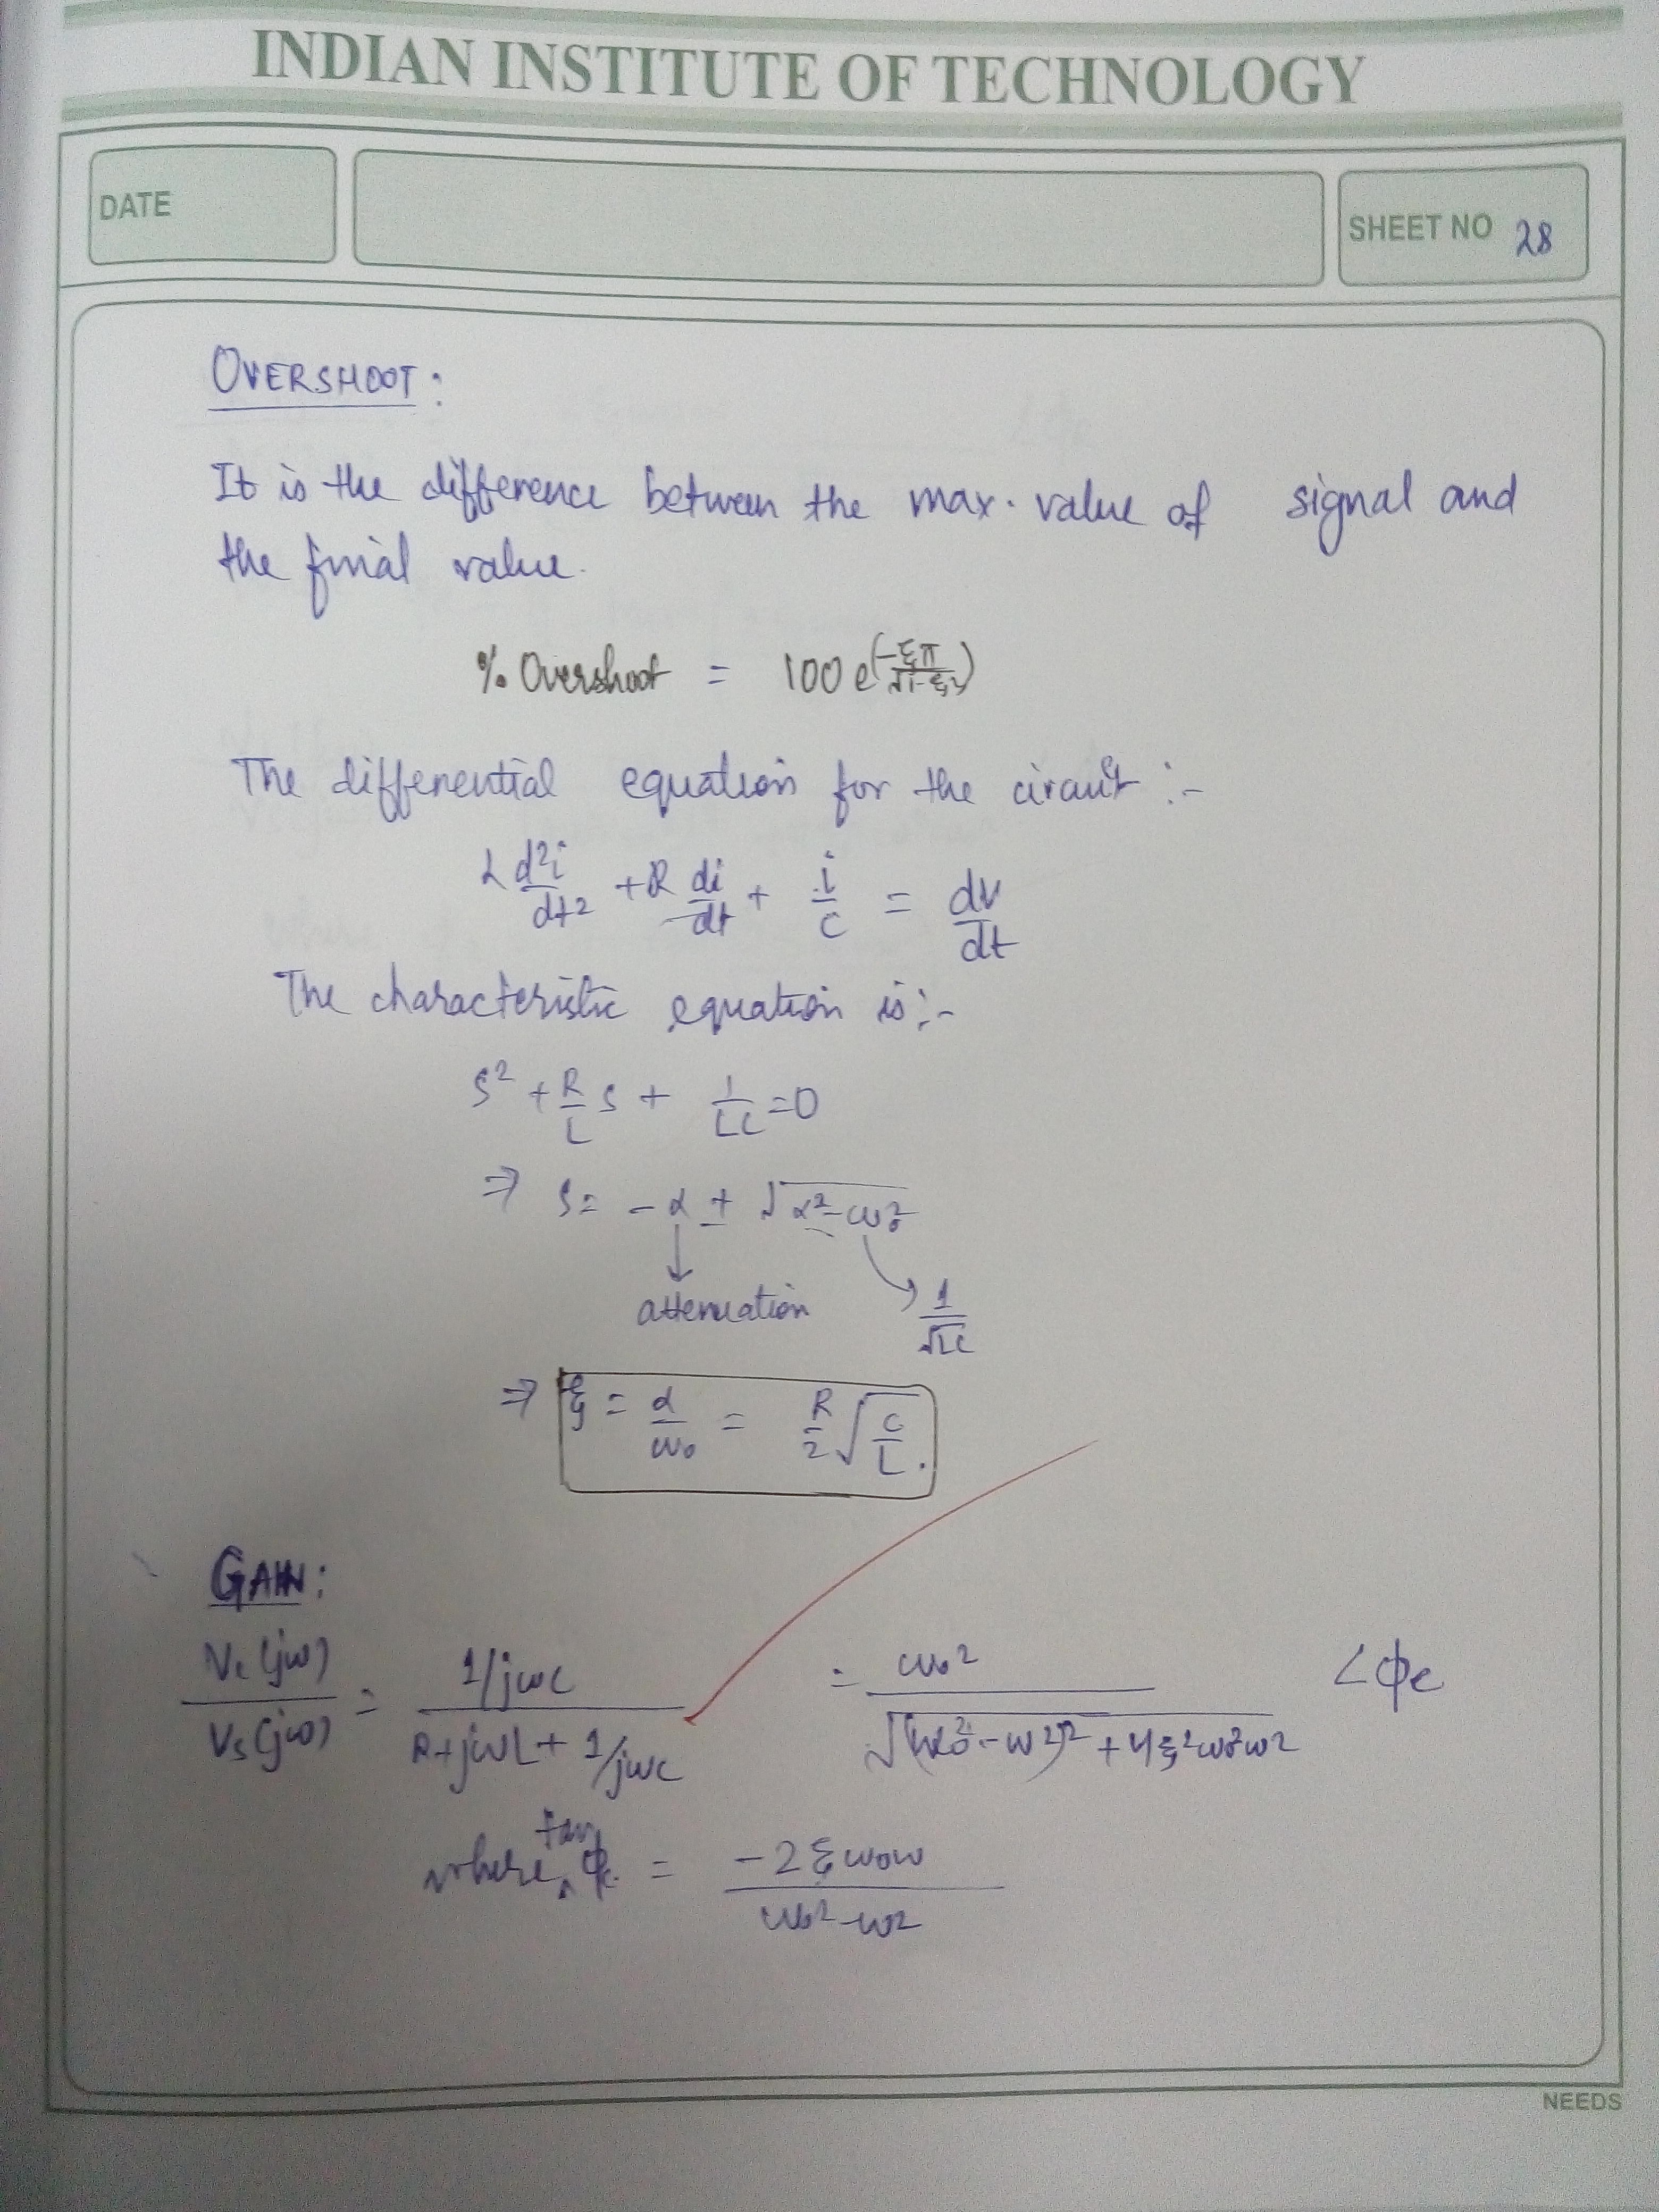 INDIAN INSTITUTE OF TECHNOLOGY
DATE
SHEET NO 28
OVERSHOOT:
It is the difference between the max. value of signal and
the final value.
% Overshoot = 100 e^(-ξπ/√(1-ξ²))
The differential equation for the circuit :-
L d²i/dt² + R di/dt + i/C = dv/dt
The characteristic equation is :-
s² + R/L s + 1/LC = 0
⇒ s = -α ± √(α² - ω₀²)
attenuation 1/√LC
⇒ ξ = α/ω₀ = R/2 √(C/L).
GAIN:
Vc(jω)/Vs(jω) = (1/jωC)/(R+jωL+1/jωC) = ω₀²/√((ω₀²-ω²)²+4ξ²ω₀²ω²) ∠ϕc
where tan ϕc = -2ξω₀ω/(ω₀²-ω²)
NEEDS